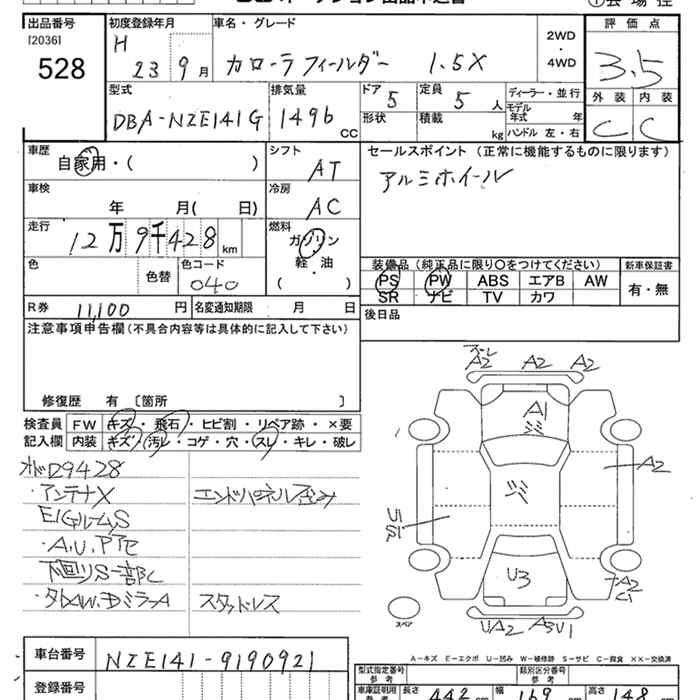 出品番号 初度登録年月 車名・グレード 評価点
[2036]
528
H
23 9月 カローラフィールダー 1.5X
2WD
・
4WD
3.5
型式 排気量 ドア 定員 ディーラー・並行 外装 内装
DBA-NZE141G 1496 CC 5 5人
形状 積載 kg
モデル年式 年
ハンドル 左・右
C C
車歴 シフト セールスポイント (正常に機能するものに限ります)
自家用・( ) AT アルミホイール
車検 冷房
年 月( 日) AC
走行 燃料
12万9千428km ガソリン
軽・油
( )
色 色替 色コード
040
装備品 (純正品に限り○をつけてください) 新車保証書
PS PW ABS エアB AW 有・無
SR ナビ TV カワ
R券 11,100円 名変通知期限 月 日 後日品
注意事項申告欄 (不具合内容等は具体的に記入して下さい)
修復歴 有 〔箇所 〕
検査員 FW キズ・飛石・ヒビ割・リペア跡・×要
記入欄 内装 キズ・汚レ・コゲ・穴・スレ・キレ・破レ
オドD9428
・アンテナX エンドパネル歪み
・A.U.Pサビ
下回りS一部C
スタッドレス
A2 A2 A2
A1
A2
U1
S1
U3
A2
C1
UA2
スペア
A-キズ E-エクボ U-凹み W-補修跡 S-サビ C-腐食 ××-交換済
車台番号 NZE141-9190921
登録番号
型式指定番号
参考
類別区分番号
参考
車庫証明用
参考
長さ 442 cm 幅 169 cm 高さ 148